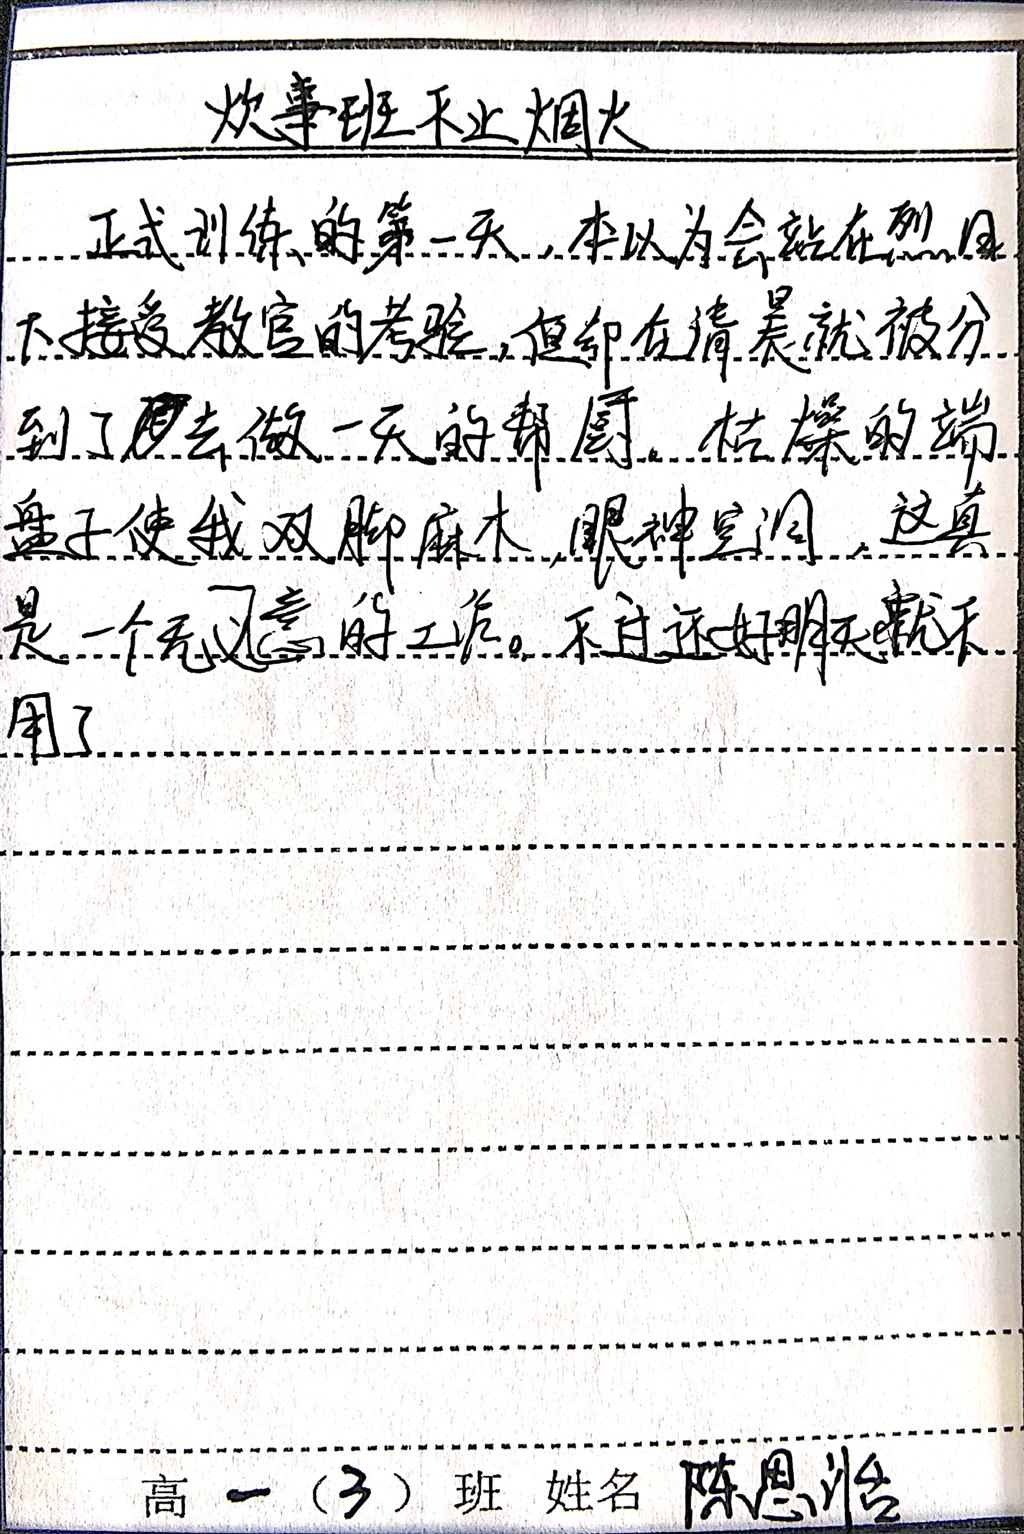 炊事班不止烟火
正式训练的第一天，本以为会站在烈日
下接受教官的考验，但却在清晨就被分
到了去做一天的帮厨。枯燥的端
盘子使我双脚麻木，眼神空洞，这真
是一个无意的工作。不过还好明天就不
用了
高一（3）班 姓名 陈思浩